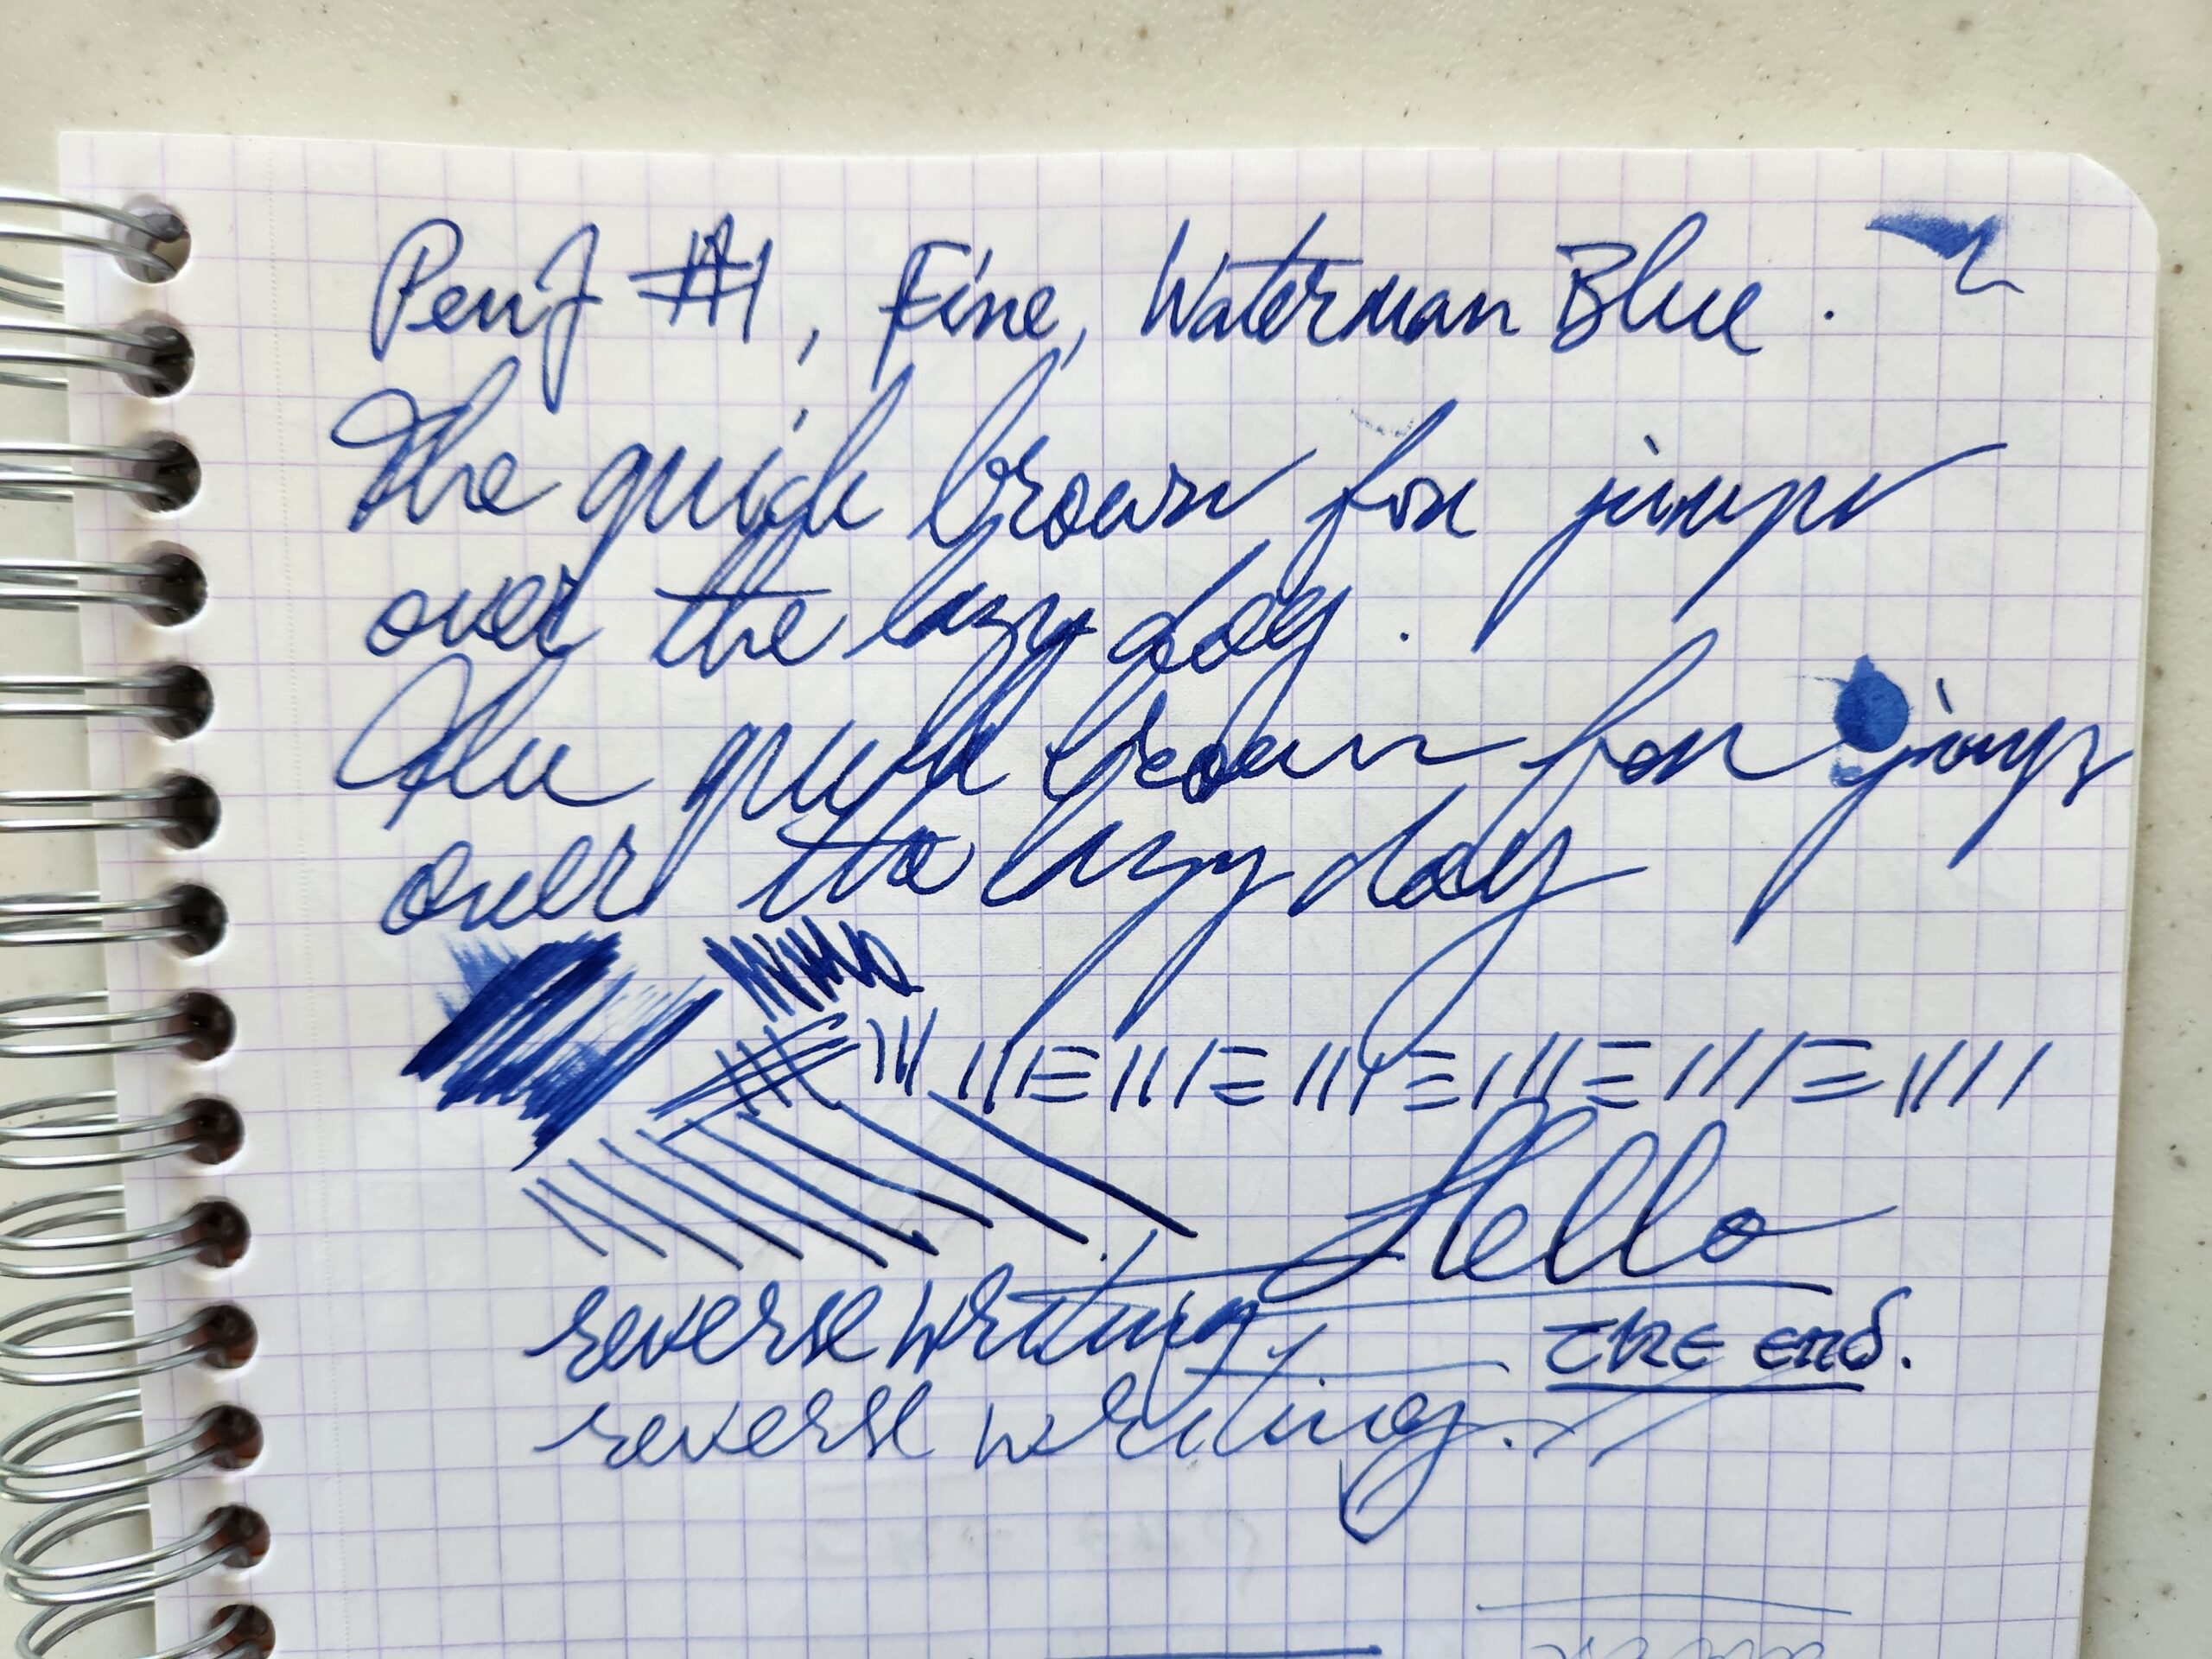 #1, Fine, Waterman Blue.
The quick brown fox jumps
over the lazy dog.
The quick brown fox jumps
over the lazy dog
Hello
reverse writing.
the end.
reverse writing.